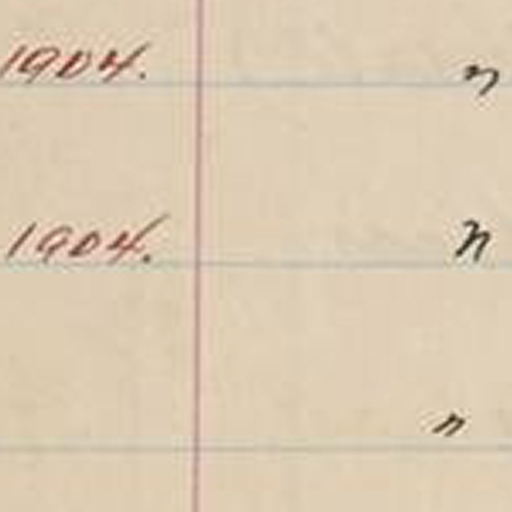 1904. n
1904. n
n